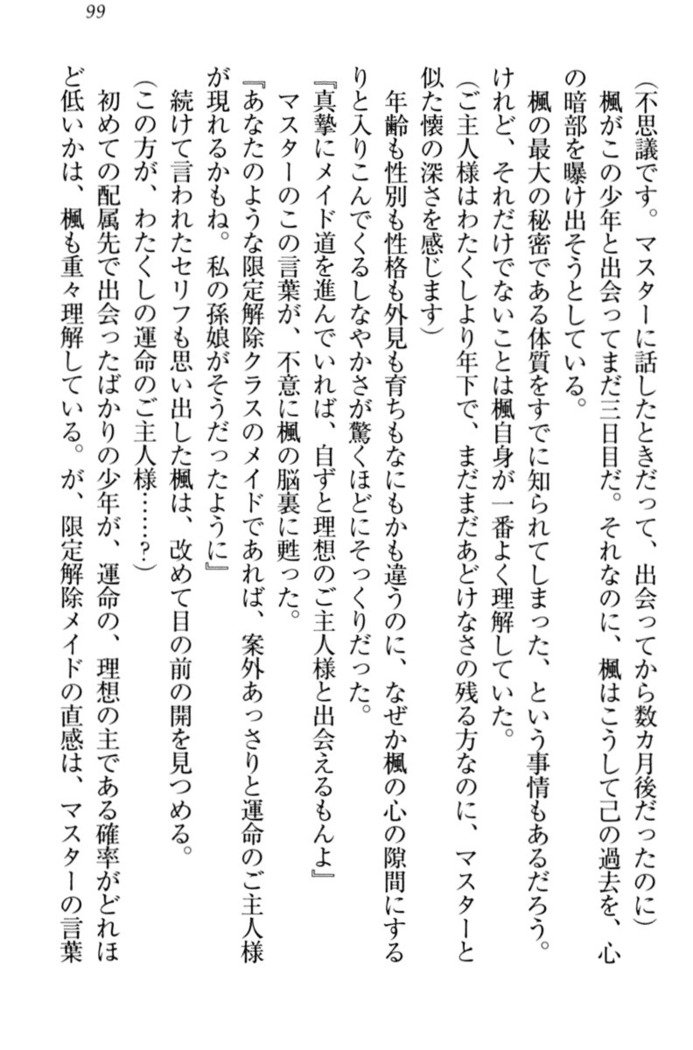 99
(不思議です。マスターに話したときだって、出会ってから数カ月後だったのに)
楓がこの少年と出会ってまだ三日目だ。それなのに、楓はこうして己の過去を、心
の暗部を曝け出そうとしている。
楓の最大の秘密である体質をすでに知られてしまった、という事情もあるだろう。
けれど、それだけでないことは楓自身が一番よく理解していた。
(ご主人様はわたくしより年下で、まだまだあどけなさの残る方なのに、マスターと
似た懐の深さを感じます)
年齢も性別も性格も外見も育ちもなにもかも違うのに、なぜか楓の心の隙間にする
りと入りこんでくるしなやかさが驚くほどにそっくりだった。
『真摯にメイド道を進んでいれば、自ずと理想のご主人様と出会えるもんよ』
マスターのこの言葉が、不意に楓の脳裏に甦った。
『あなたのような限定解除クラスのメイドであれば、案外あっさりと運命のご主人様
が現れるかもね。私の孫娘がそうだったように』
続けて言われたセリフも思い出した楓は、改めて目の前の開を見つめる。
(この方が、わたくしの運命のご主人様……?)
初めての配属先で出会ったばかりの少年が、運命の、理想の主である確率がどれほ
ど低いかは、楓も重々理解している。が、限定解除メイドの直感は、マスターの言葉